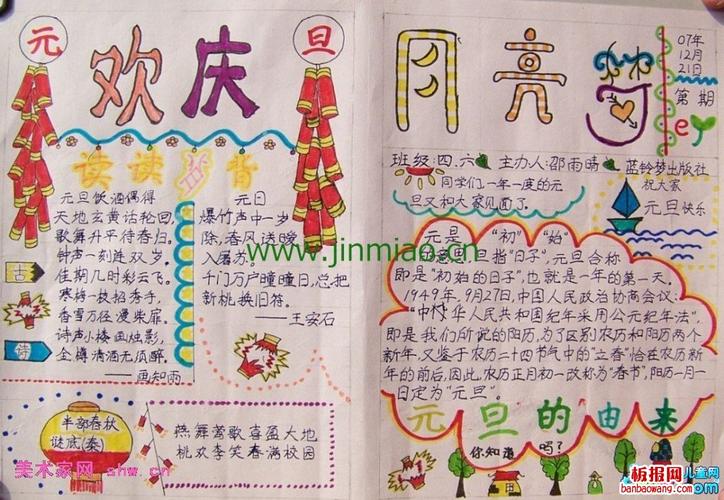 元
旦
欢庆
读读背背
元旦饮酒偶得
天地玄黄话轮回,
歌舞升平待春归。
钟声一刻连双岁,
佳期几时彩云飞。
寒梅一枝招秀手,
香雪万径漫柴扉。
诗声小楼画烛影,
金樽清酒无须醉。
——画知雨
古
诗
元日
爆竹声中一岁
除,春风送暖
入屠苏。
千门万户曈曈日,总把
新桃换旧符。
——王安石
半部春秋
谜底(秦)
燕舞莺歌喜盈大地
桃欢李笑春满校园
月亮船
07年
12月
21日
第 期
班级:四.六
主办人:邵雨晴
蓝铃梦出版社
同学们,一年一度的元
旦又和大家见面了。
祝大家
元旦快乐
元是“初”“始”
的意思,旦指“日子”,元旦合称
即是“初始的日子”,也就是一年的第一天。
1949年9月27日,中国人民政治协商会议:
“中华人民共和国纪年采用公元纪年法”。
即是我们所说的阳历,为了区别农历和阳历两个
新年,又鉴于农历二十四节气中的“立春”恰在农历新
年的前后,因此,农历正月初一改称为“春节”,阳历一月一
日定为“元旦”。
元旦的由来
你知道吗?
www.jinmiao.cn
美术家网 ahw.cn
板报网 儿童网
banbaowang.com